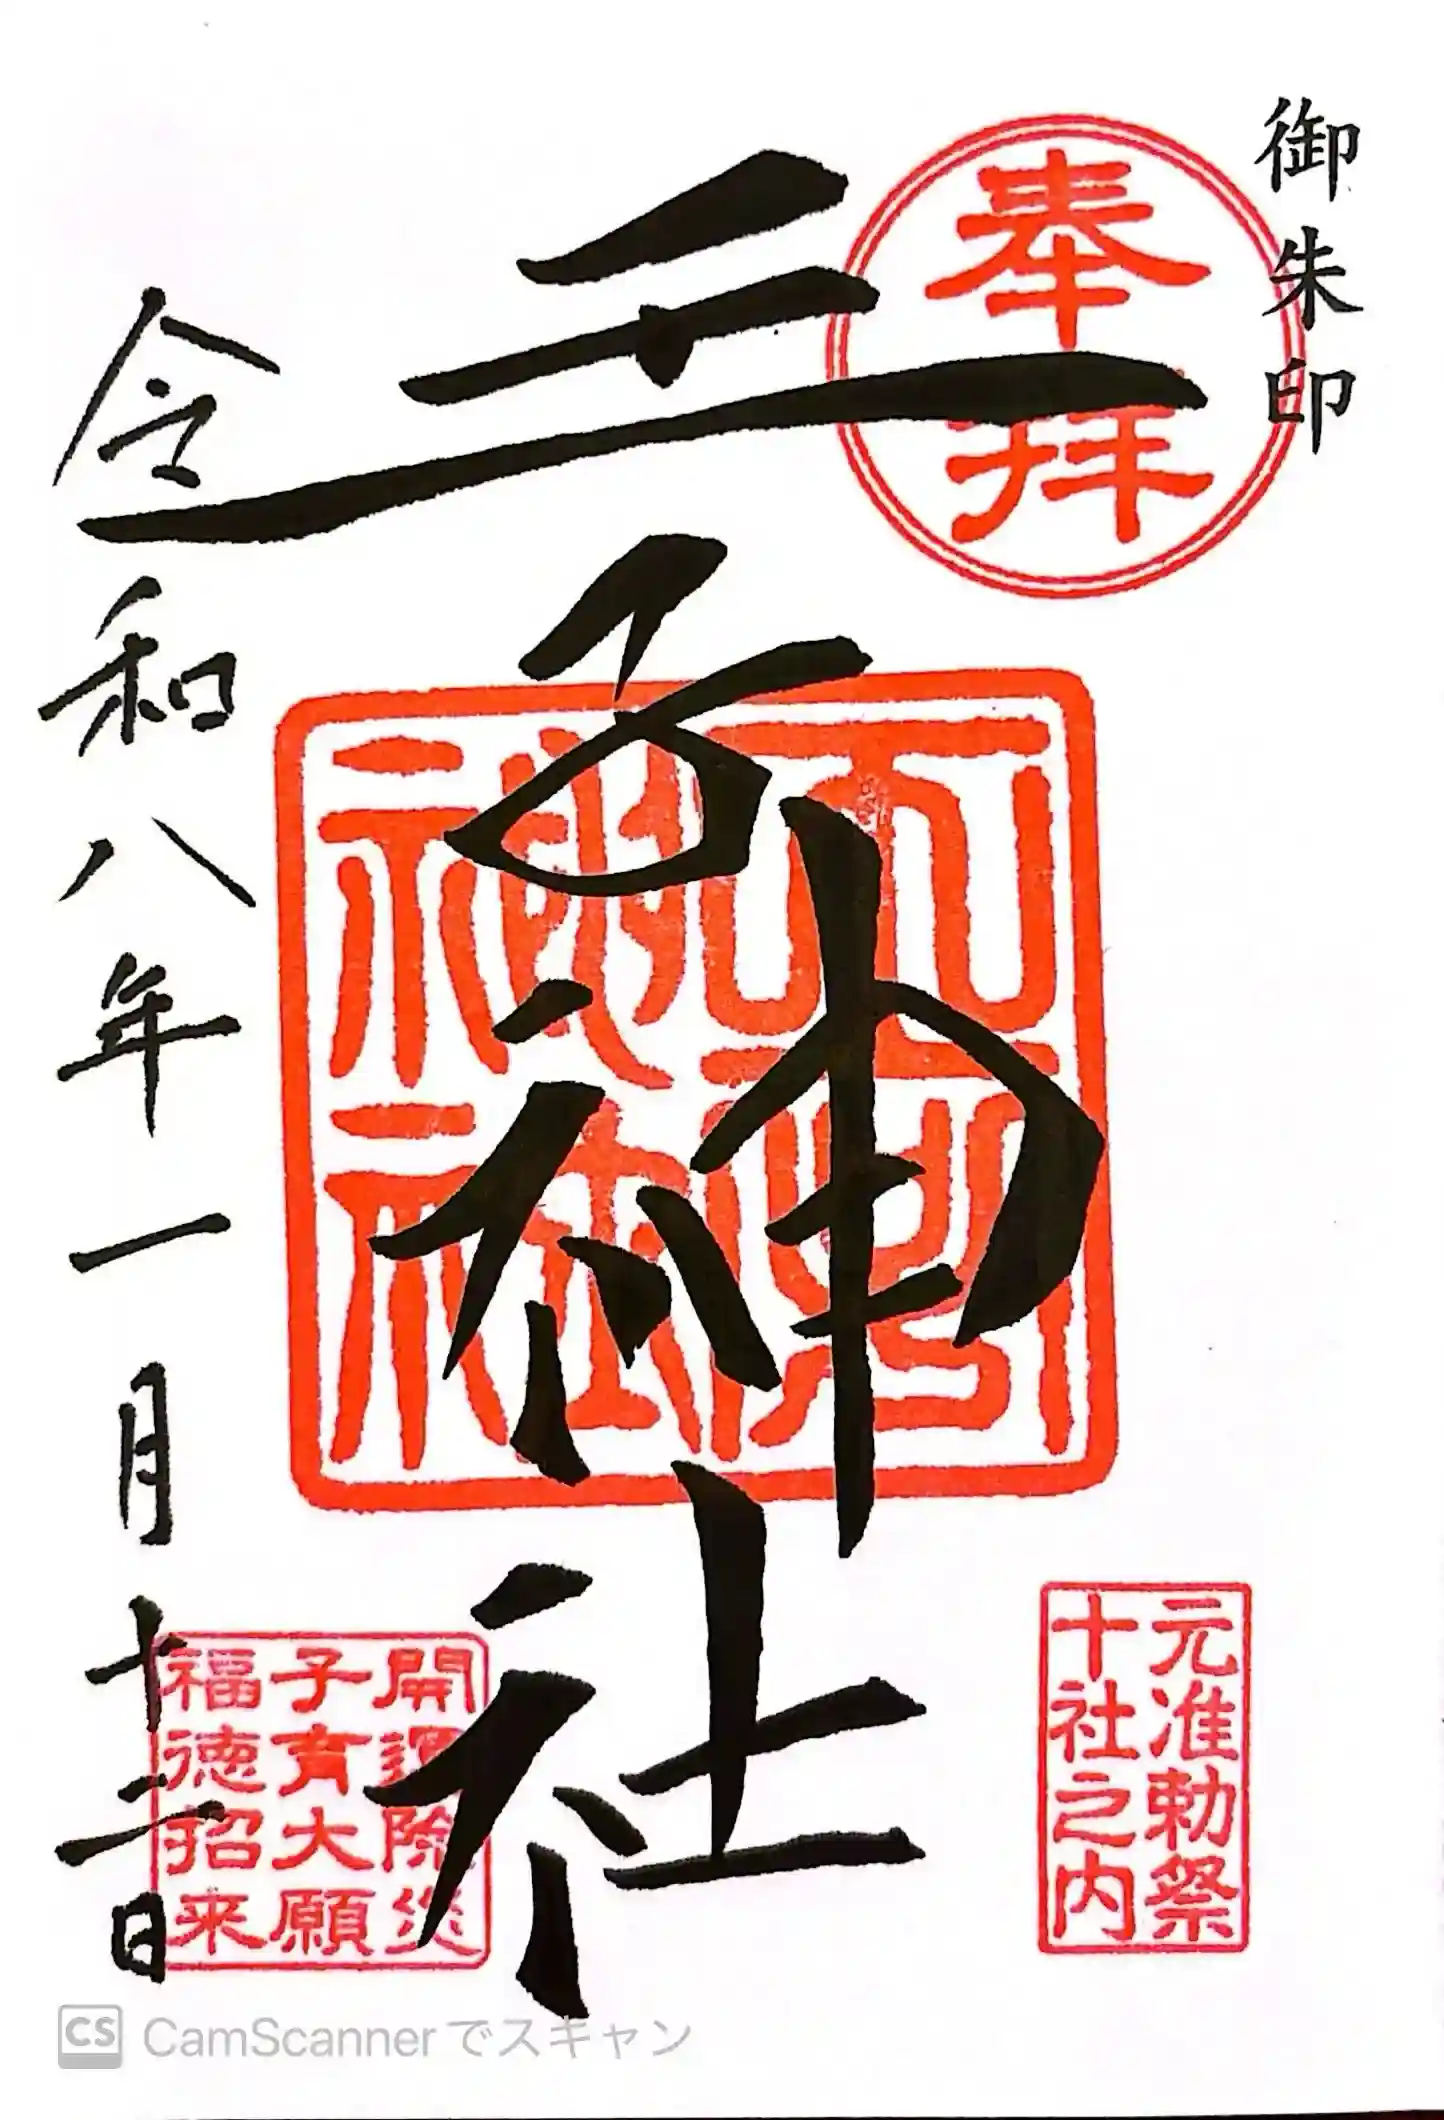 御朱印
奉拝
王子神社
王子神社
令和八年一月十二日
元准勅祭
十社之内
開運除災
子育大願
福徳招来
CS CamScannerでスキャン